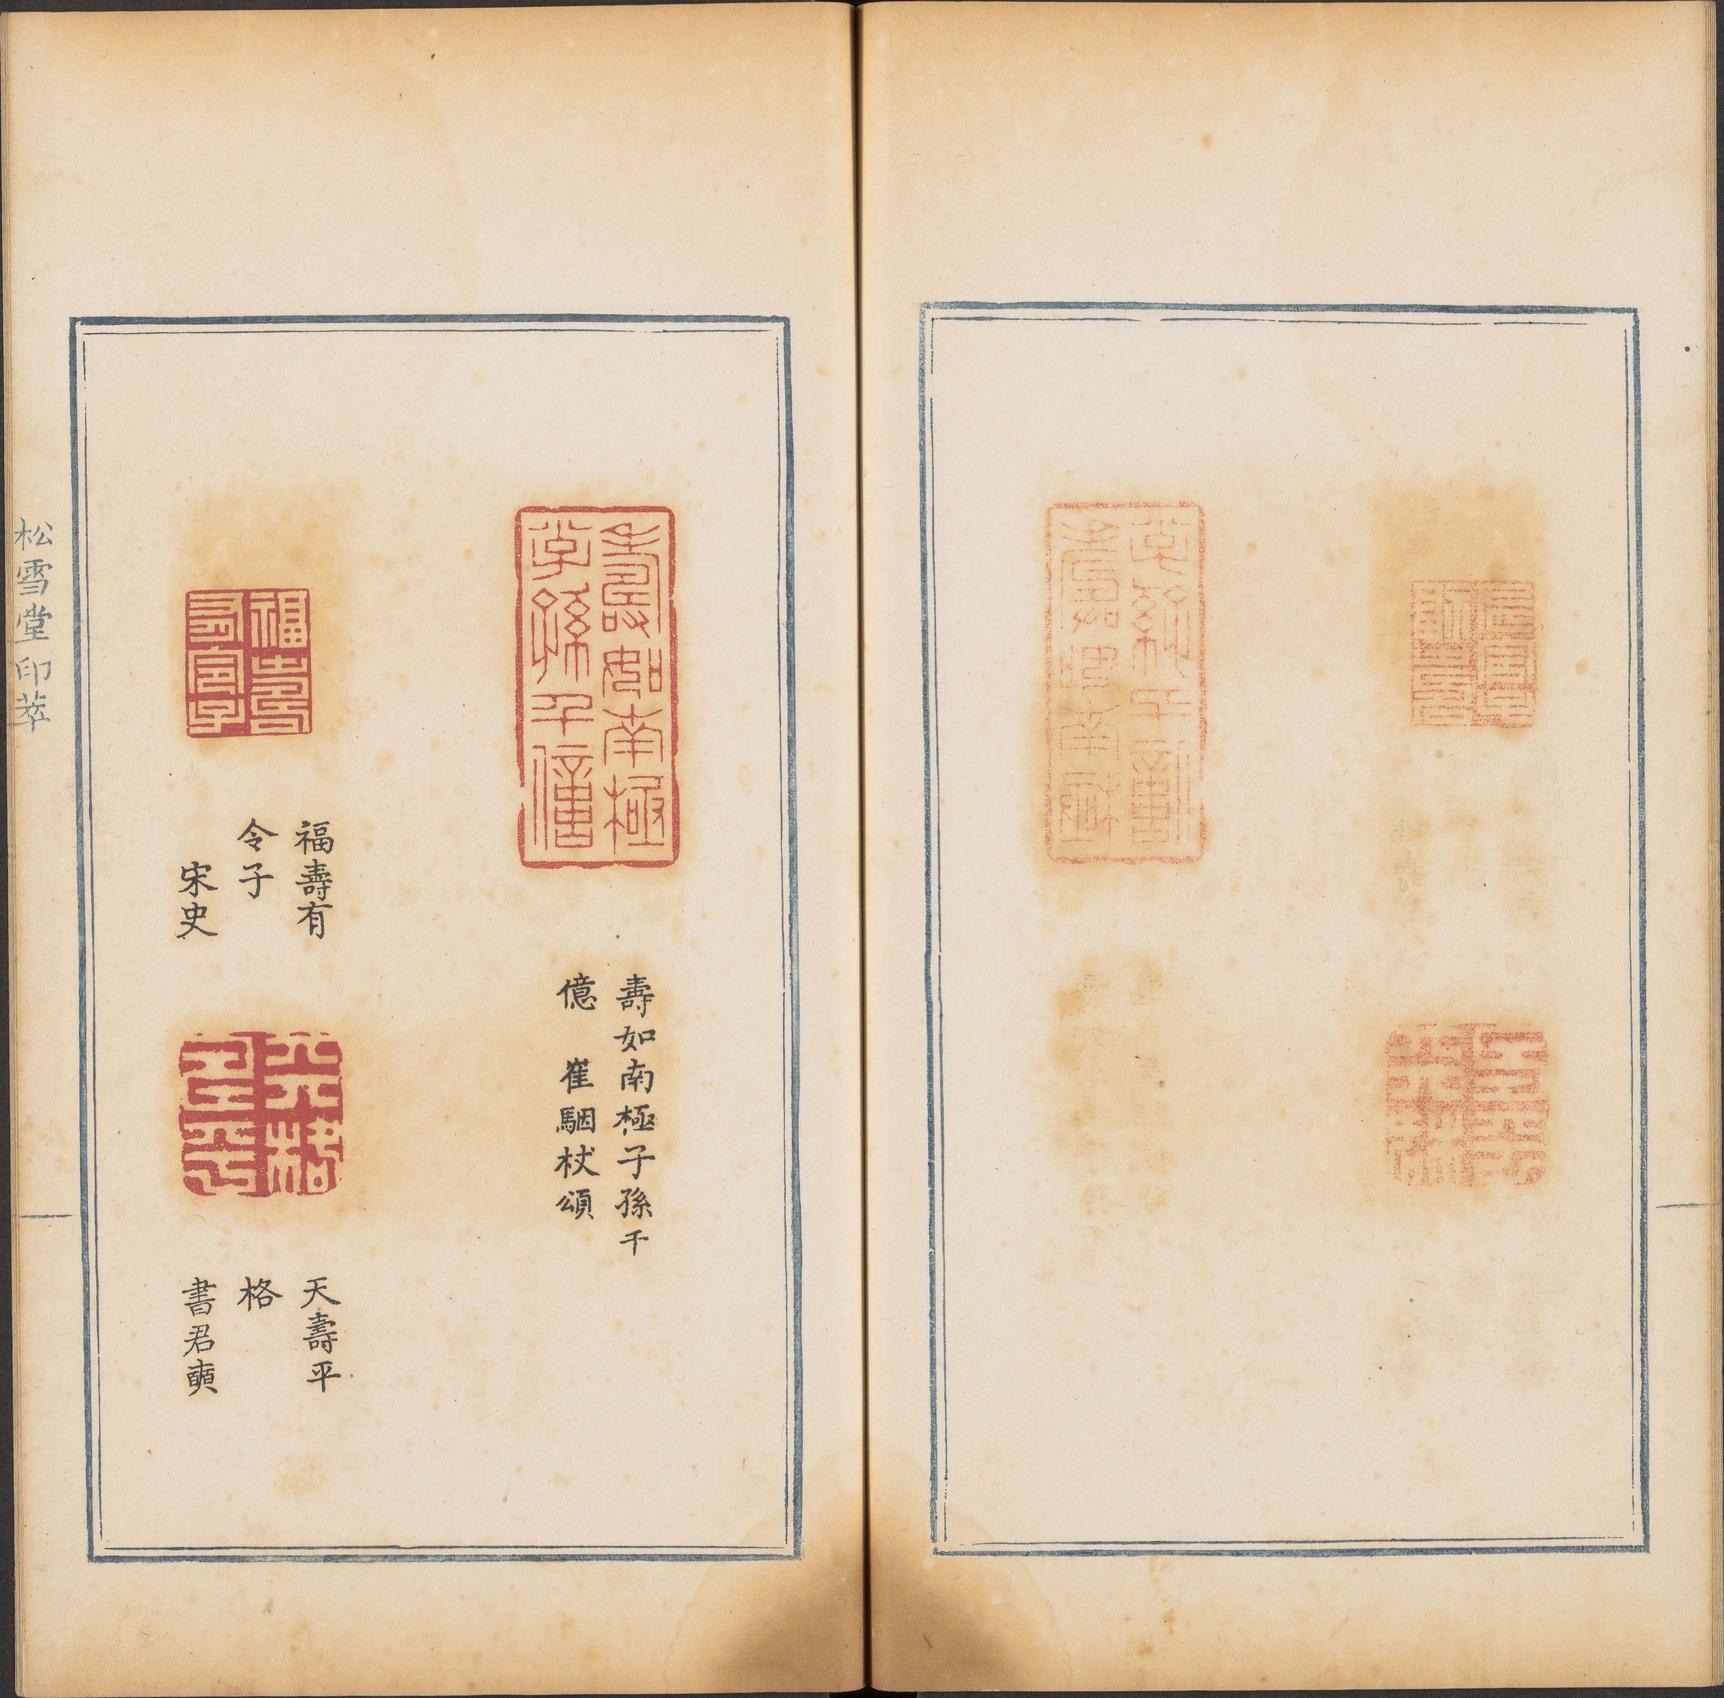 壽如南極子孫千億
壽如南極子孫千
億　崔駰杖頌
福壽有令子
福壽有
令子
宋史
天壽平格
天壽平
格
書君奭
松雪堂印萃